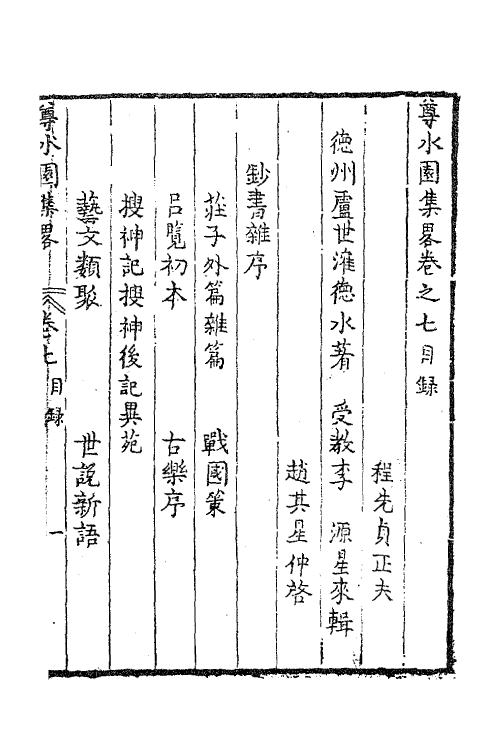 尊水園集畧卷之七目録
程先貞正夫
德州盧世㴶德水著　受教李　源星來輯
趙其星仲啓
鈔書雜序
莊子外篇雜篇　戰國策
吕覽初本　古樂序
搜神記搜神後記異苑
藝文類聚　世說新語
尊水園集畧　卷七目録　一